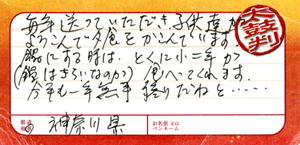 毎年送っていただき、子供達が
よろこんで夕食をかこんでいます。
鍋にする時は、とくに小二年が
(鍋はきらいなのか?) 食べてくれます。
今年も一年無事 穫りだねと……
太鼓判
都道
府県
神奈川県
お名前 又は
ペンネーム